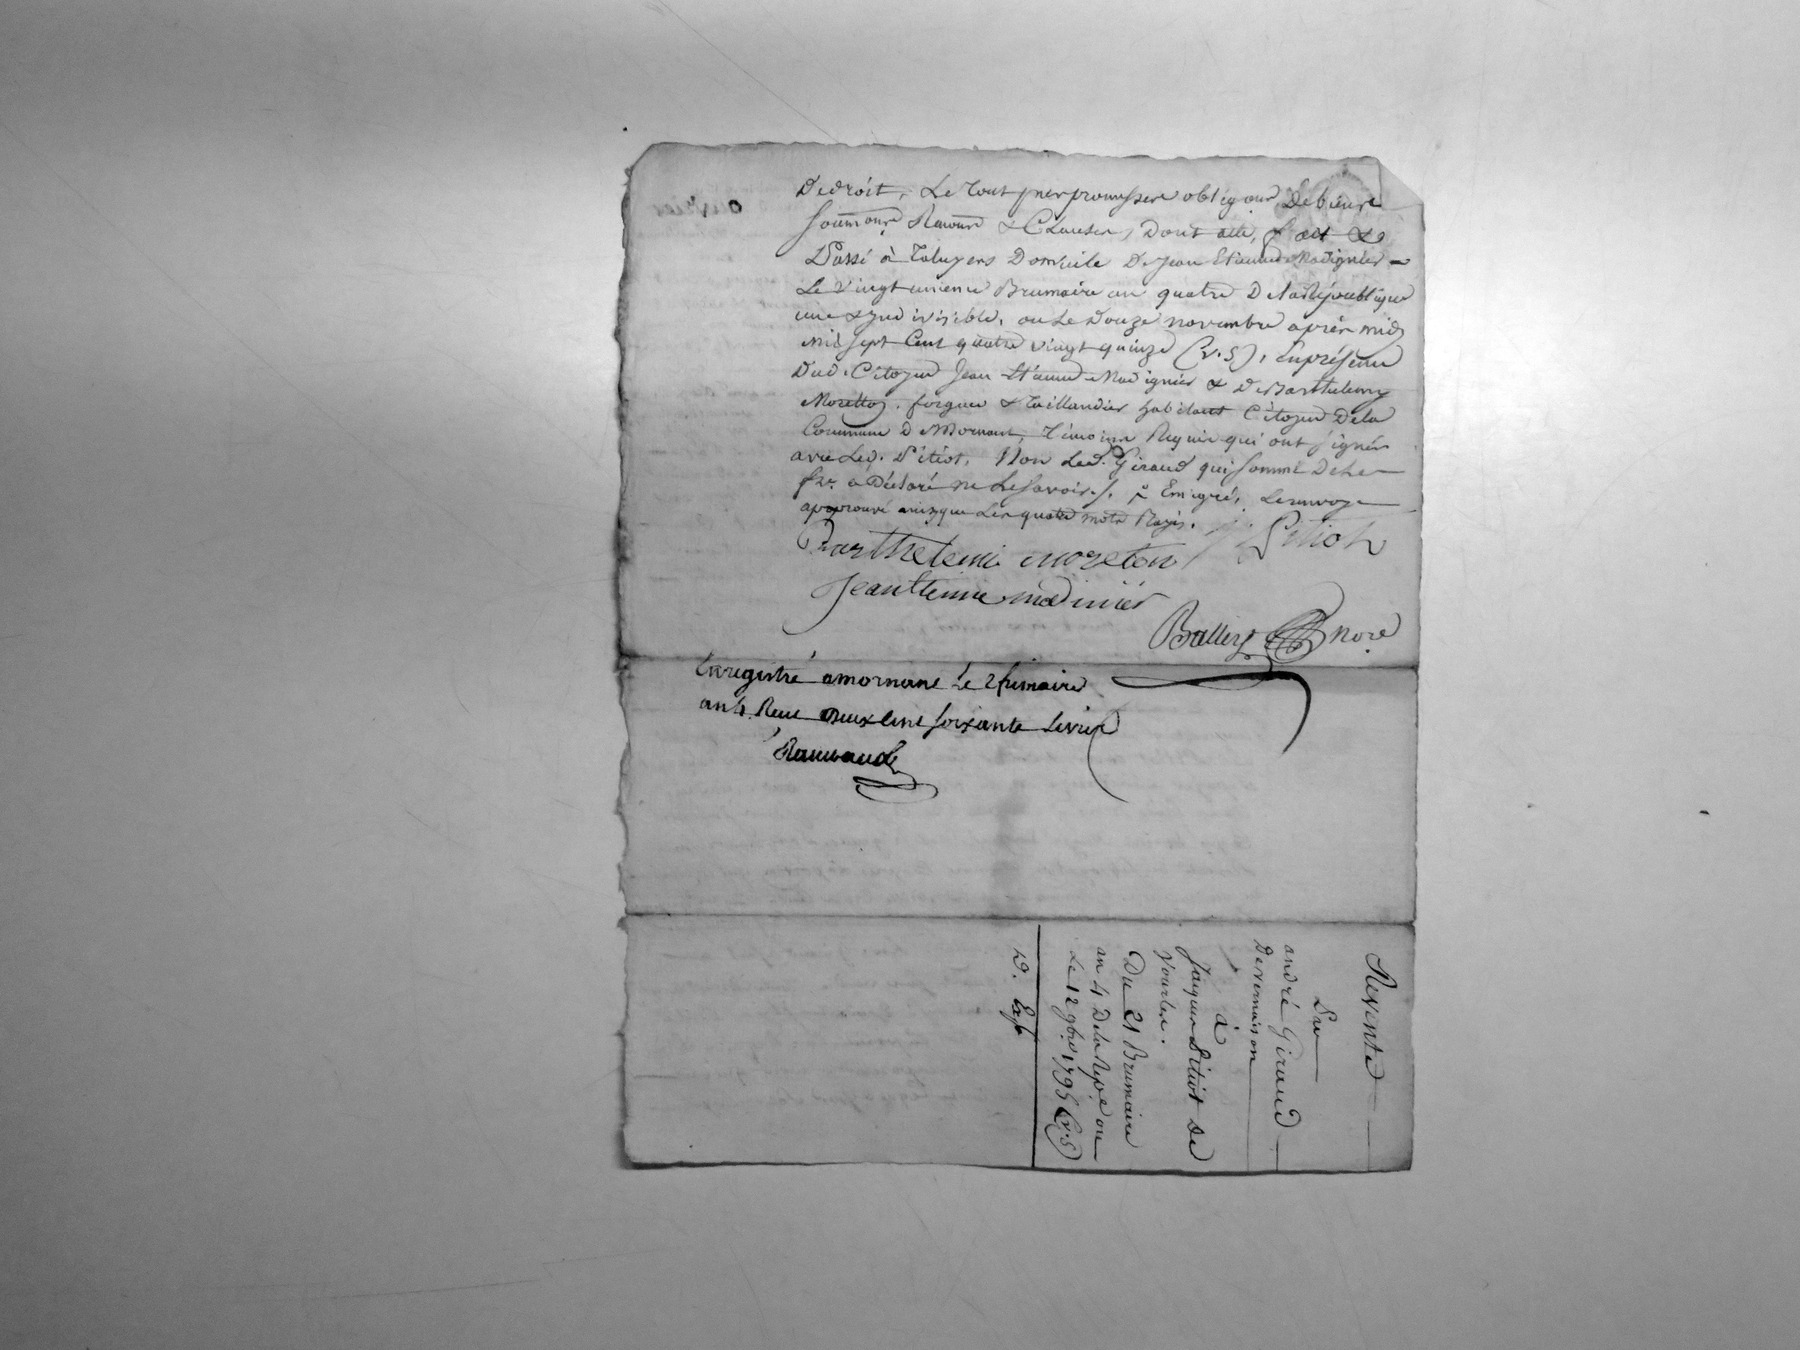 De droit, Le tout par promesse obligaon De biens
soumons Renons & Clauses, Dont acte, fait &
Passé à Taluyers Domicile De Jean Etienne Madignier =
Le vingt unieme Brumaire an quatre De la République
une & Indivisible, ou Le Douze novembre après midy
mil sept Cent quatre vingt quinze (v.S), En présence
Dud. Citoyen Jean Etienne Madignier & De Barthelemy
Moretton, forgeur & Taillandier habitant Citoyen De la
Commune De Mornant, Témoins Requis qui ont signés
avec Led. Pitiot, Non Led. Giraud qui sommé De le
fre. a Déclaré ne Le savoir./. Emigré, Le renvoye
approuvé ainsy que Les quatre mots Rayés.
Barthelemi moreton J. Pitiot
Jean Etienne madinier
Ballerg Nore
Enregistré a mornant Le 2 frimaire
an 4. Reçu Deux Cent soixante Livres
Revente
Par
andré Giraud
De vernaison
à
Jaques Pitiot De
Vourles.
Du 21 Brumaire
an 4 De la Rép.e ou
Le 12 9bre 1795 (v.S)
D. Exp